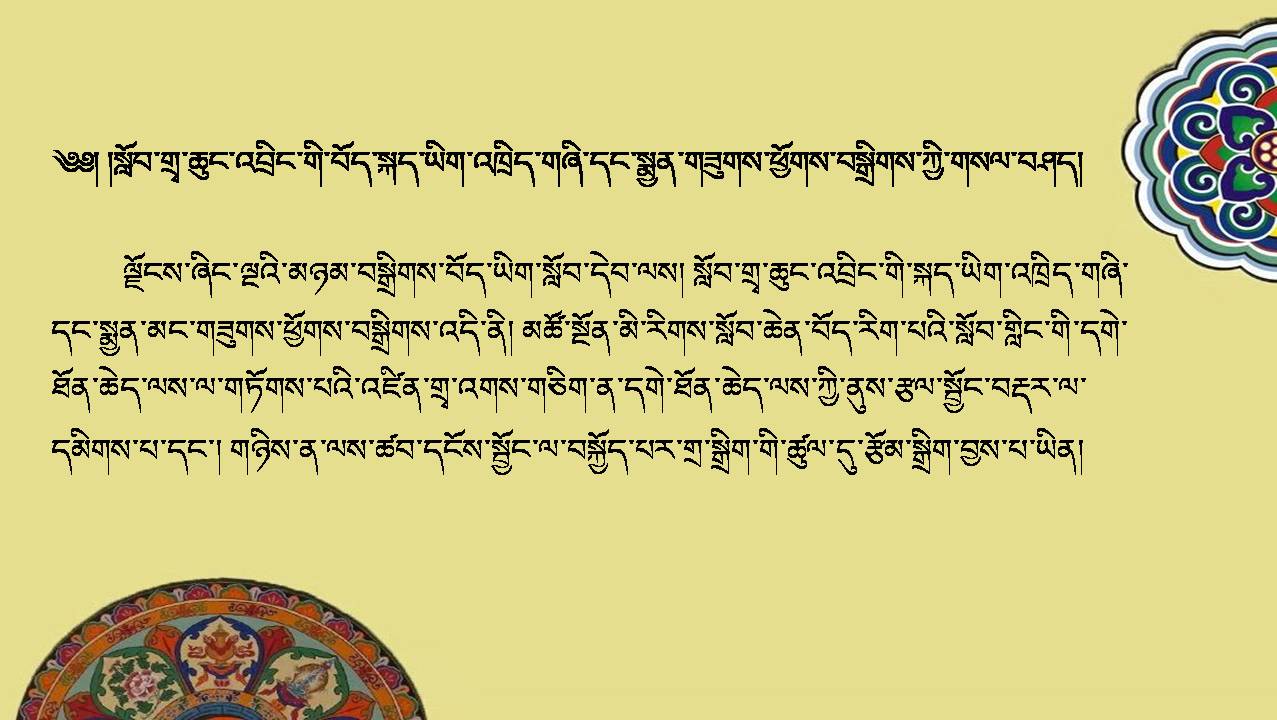 ༄༅། །སློབ་གྲྭ་ཆུང་འབྲིང་གི་བོད་སྐད་ཡིག་འཁྲིད་གཞི་དང་སྨྱན་གཟུགས་ཕྱོགས་བསྒྲིགས་ཀྱི་གསལ་བཤད།
ལྗོངས་ཞིང་ལྔའི་མཉམ་བསྒྲིགས་བོད་ཡིག་སློབ་དེབ་ལས། སློབ་གྲྭ་ཆུང་འབྲིང་གི་སྐད་ཡིག་འཁྲིད་གཞི་
དང་སྨྱན་མང་གཟུགས་ཕྱོགས་བསྒྲིགས་འདི་ནི། མཚོ་སྔོན་མི་རིགས་སློབ་ཆེན་བོད་རིག་པའི་སློབ་གླིང་གི་དགེ་
ཐོན་ཆེད་ལས་ལ་གཏོགས་པའི་འཛིན་གྲྭ་འགས་གཅིག་ན་དགེ་ཐོན་ཆེད་ལས་ཀྱི་ནུས་རྩལ་སྦྱོང་བརྡར་ལ་
དམིགས་པ་དང་། གཉིས་ན་ལས་ཚབ་དངོས་སྦྱོང་ལ་བསྐྱོད་པར་གྲ་སྒྲིག་གི་ཚུལ་དུ་རྩོམ་སྒྲིག་བྱས་པ་ཡིན།